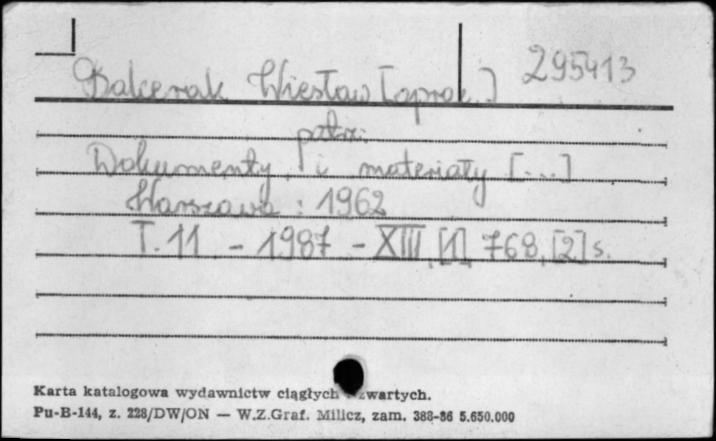 Balcerak Wiesław [oprac.] 295413
patrz:
Dokumenty i materiały [...]
Warszawa : 1962
T. 11 - 1987 - XIII, [1], 768, [2] s.
Karta katalogowa wydawnictw ciągłych zwartych.
Pu-B-144, z. 228/DW/ON — W.Z.Graf. Milicz, zam. 388-86 5.650.000